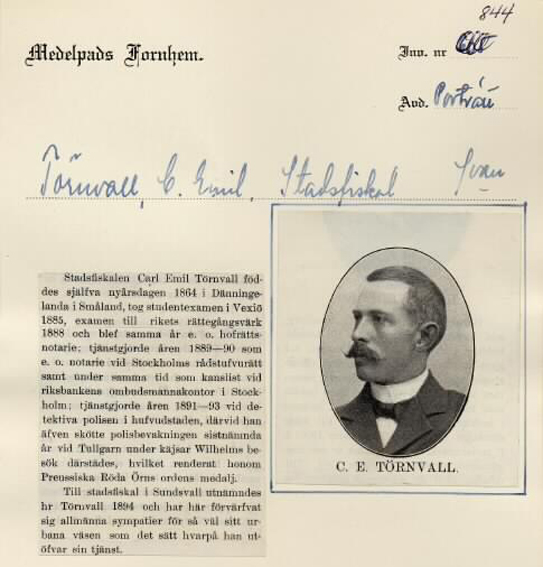 844
Medelpads Fornhem.
Inv. nr
Avd. Porträtt
Törnvall, C. Emil, Stadsfiskal
Stadsfiskalen Carl Emil Törnvall föd-
des själfva nyårsdagen 1864 i Dänninge-
landa i Småland, tog studentexamen i Vexiö
1885, examen till rikets rättegångsvärk
1888 och blef samma år e. o. hofrätts-
notarie; tjänstgjorde åren 1889—90 som
e. o. notarie vid Stockholms rådstufvurätt
samt under samma tid som kanslist vid
riksbankens ombudsmannakontor i Stock-
holm; tjänstgjorde åren 1891—93 vid de-
tektiva polisen i hufvudstaden, därvid han
äfven skötte polisbevakningen sistnämnda
år vid Tullgarn under käjsar Wilhelms be-
sök därstädes, hvilket renderat honom
Preussiska Röda Örns ordens medalj.
Till stadsfiskal i Sundsvall utnämndes
hr Törnvall 1894 och har här förvärfvat
sig allmänna sympatier för så väl sitt ur-
bana väsen som det sätt hvarpå han ut-
öfvar sin tjänst.
C. E. TÖRNVALL.